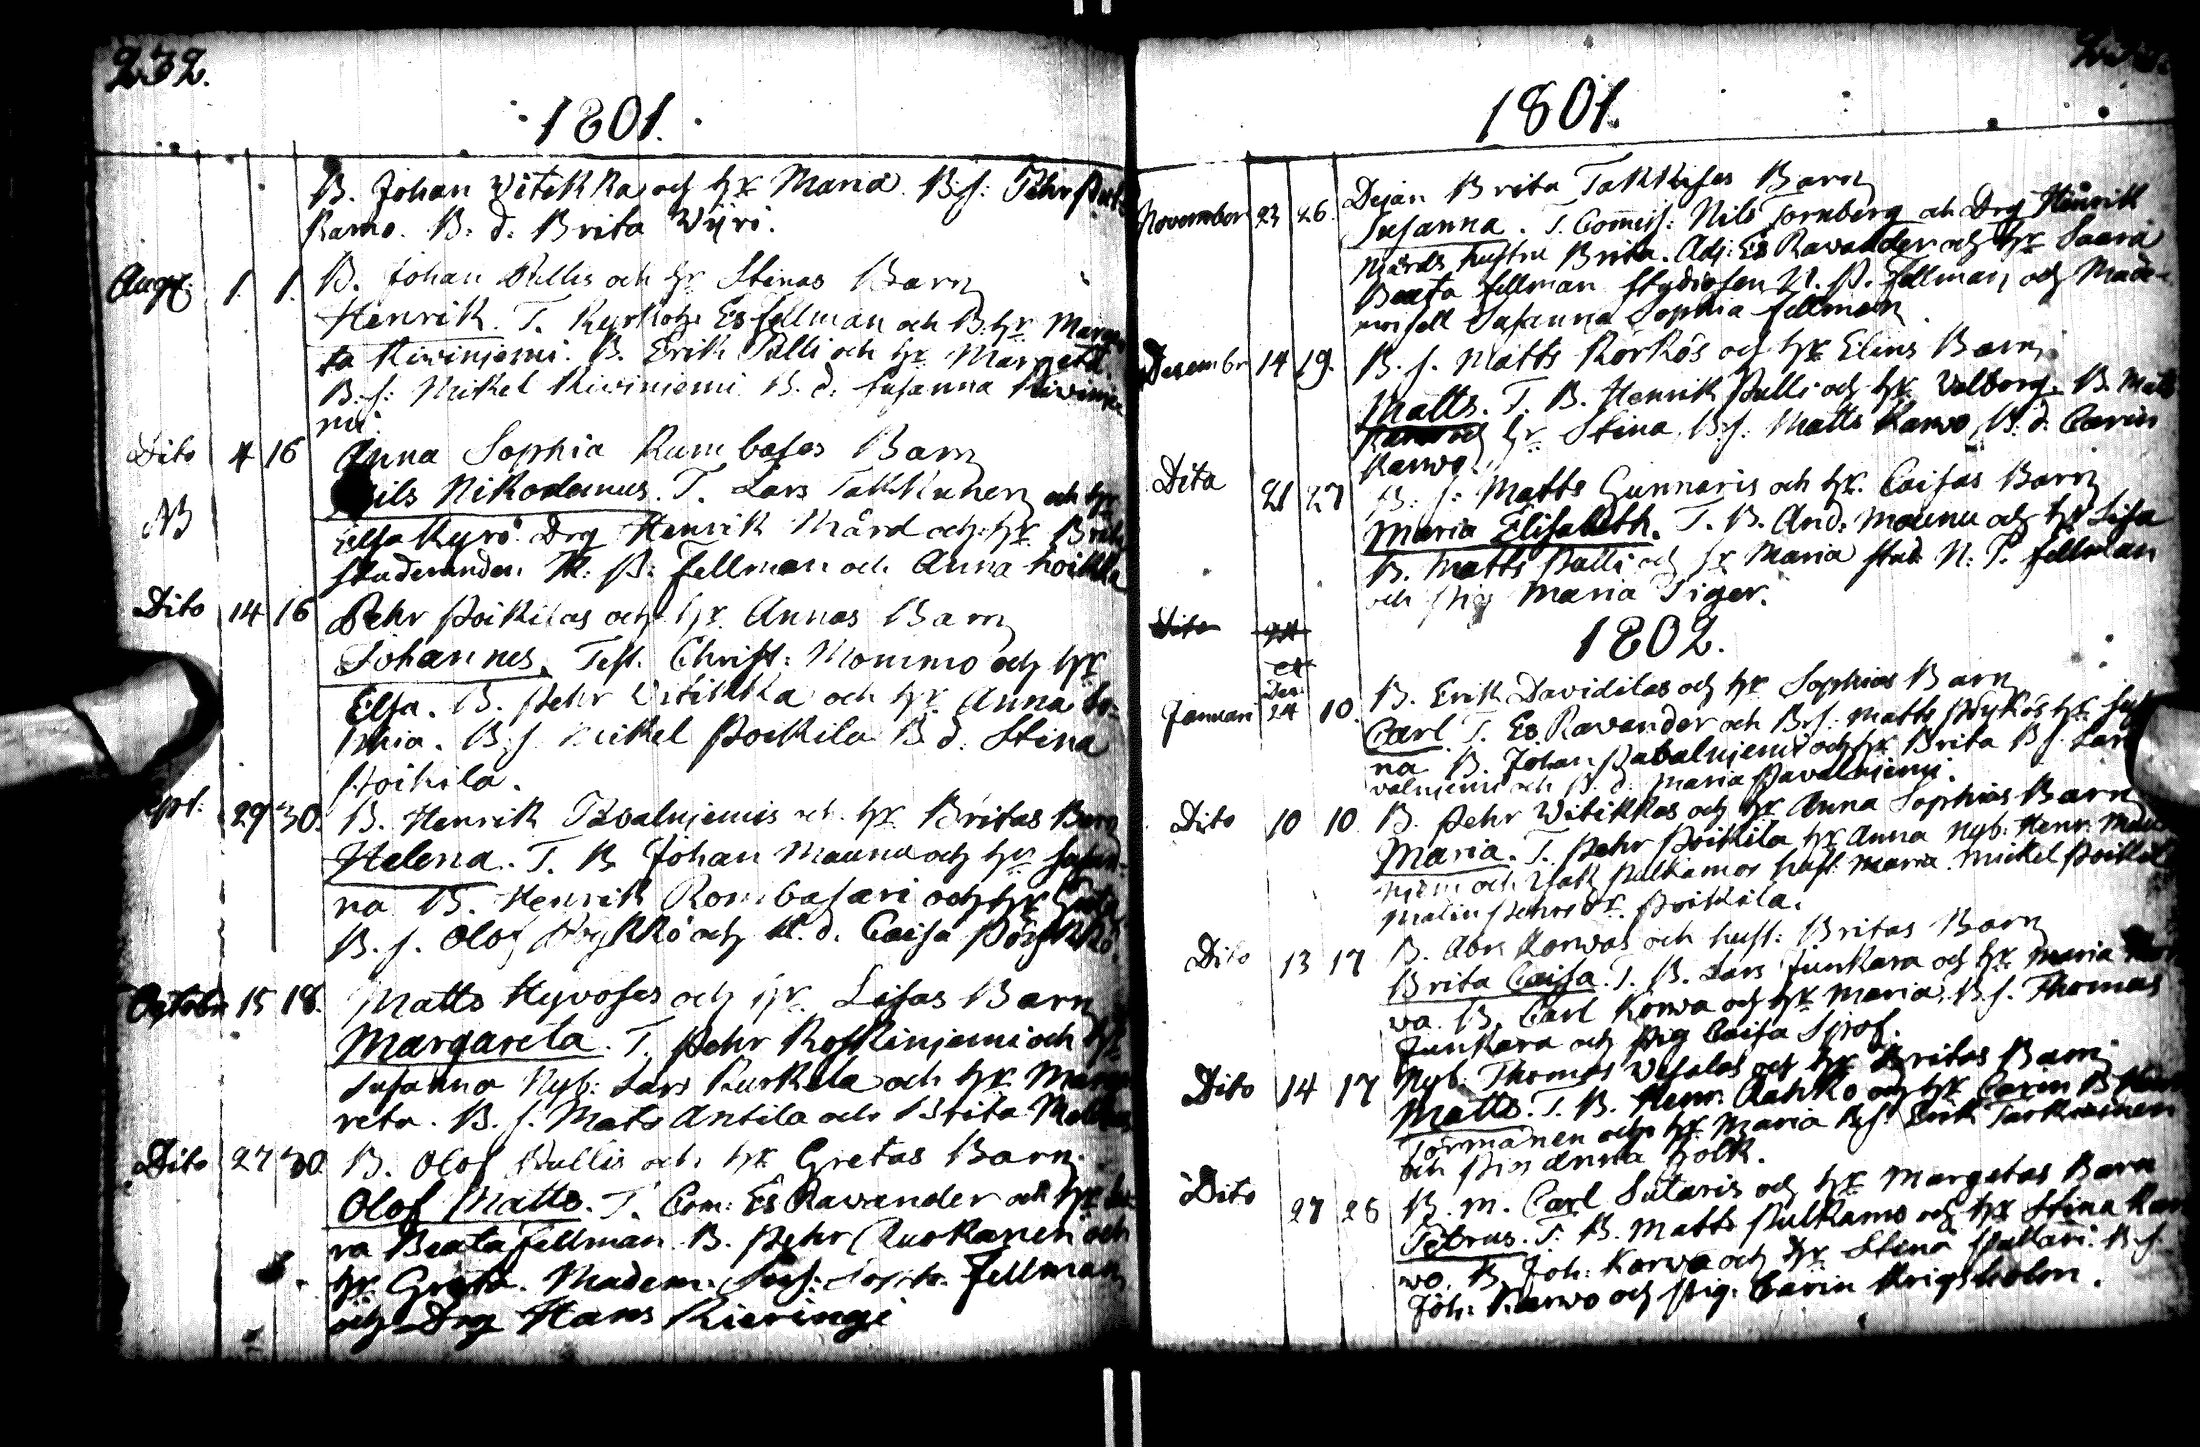 232.
1801.
B. Johan Witikka och hr Maria. B.s: Pehr Pul-
kamo. B. d. Brita Wiiri.
Augt. 1. 1. B. Johan Pullis och hr Stinas Barn
Henrik. T. Kyrkoh. Es Fellman och B. hr Marga
ta Kiviniemi. B. Erik Palli och hr Margeta.
B.s: Mikel Kiviniemi B. d. Susanna Kivinie
mi.
Dito 4 16 Anna Sophia Rumbases Barn
Nils Nikodemus. T. Lars Takkinen och hr
NB
Elsa Kyrö. Drg Henrik Mård och hr Brita
Studeranden N. P. Fellman och Anna
Dito 14 16 Pehr Poikilas och hr. Annas Barn
Johannes. Test. Christ: Mommo och hr
Elsa. B. Pehr Witikka och hr. Anna So-
phia. B.s. Mickel Poikila B. d. Stina
Poikila.
Sept. 29 30. B. Henrik Pavalnjemis och hr Britas Barn
Helena. T. B. Johan Maunu och hr Susan-
na B. Henrik Rombasari och hr Greta
B. s. Olof Pöykkö och B. d. Caisa Pöykkö.
October 15 18. Matts Hyvoses och hr. Lisas Barn
Margareta. T. Pehr Koskinjemi och hr
Susanna Nyb: Lars Kurkela och hr Marga
reta. B. s. Mats Antila och Brita
Dito 27 30. B. Olof Pullis och hr Gretas Barn.
Olof Matts. T. Com: Es Ravander och hr Sa-
ra Beata Fellman. B. Pehr Ruokanen och
hr Greta. Madem: Sus: Soph. Fellman
och Drg Hans Kieringi
1801.
Dejan Brita Takkises Barn
November 23 26. Susanna. T. Commiss: Nils Tornberg och Drg Henrik
Mårds hustru Brita. Adj: Es Ravander och hr Saara
Beata Fellman Studiosen N. P. Fellman och Made-
moisell Susanna Sophia Fellman
Desembr 14 19. B. s. Matts Körkös och hr Elins Barn
Matts. T. B. Henrik Pulli och hr. Valborg. B. Matts
Karvo och hr. Stina, B.s: Matts Karvo, B. d. Carin
Karvo.
Dito 21 27 B. s: Matts Gunnaris och hr. Caisas Barn
Maria Elisabeth. T. B. And: Maunu och hr Lisa
B. Matts Palli och hr Maria Stud. N. P. Fellman
och Pig Maria Tiger.
Dito
1802.
Januari Des: 24 10. B. Erik Daviditas och hr Sophias Barn
Carl. T. Es Ravander och B.s: Matts Pöykös hr Sus
na B. Johan Pavalnjemi och hr Brita B s. Lars
valnjemi och B. d. Maria Pavalnjemi.
Dito 10 10 B. Pehr Witikkas och hr Anna Sophias Barn
Maria. T. Pehr Poikila hr Anna Nyb: Henr.
njemi och Isak Pulkamos hust. Maria. Mickel Poikila
Malin Pehrsdr. Poikila.
Dito 13 17 B. Abr. Korvas och hust: Britas Barn
Brita Caisa. T. B. Lars Junkara och hr Maria Kor
va. B. Carl Korva och hr Maria. B. s. Thomas
Junkara och Pig Caisa Sjrof.
Dito 14 17 Nyb. Thomas Vesalas och hr Britas Barn
Matts. T. B. Henr. Rahko och hr Carin B.
Törmänen och hr Maria B.s. Erik Tarkiainen
och Pig Anna Holk.
Dito 27 28 B. M. Carl Sutaris och hr Margetas Barn
Petrus. T. B. Matts Pulkamo och hr Stina Kar
vo. B. Joh: Karvo och hr. Stina Puttari. B. s.
Joh: Karvo och Pig: Carin Krigsholm.